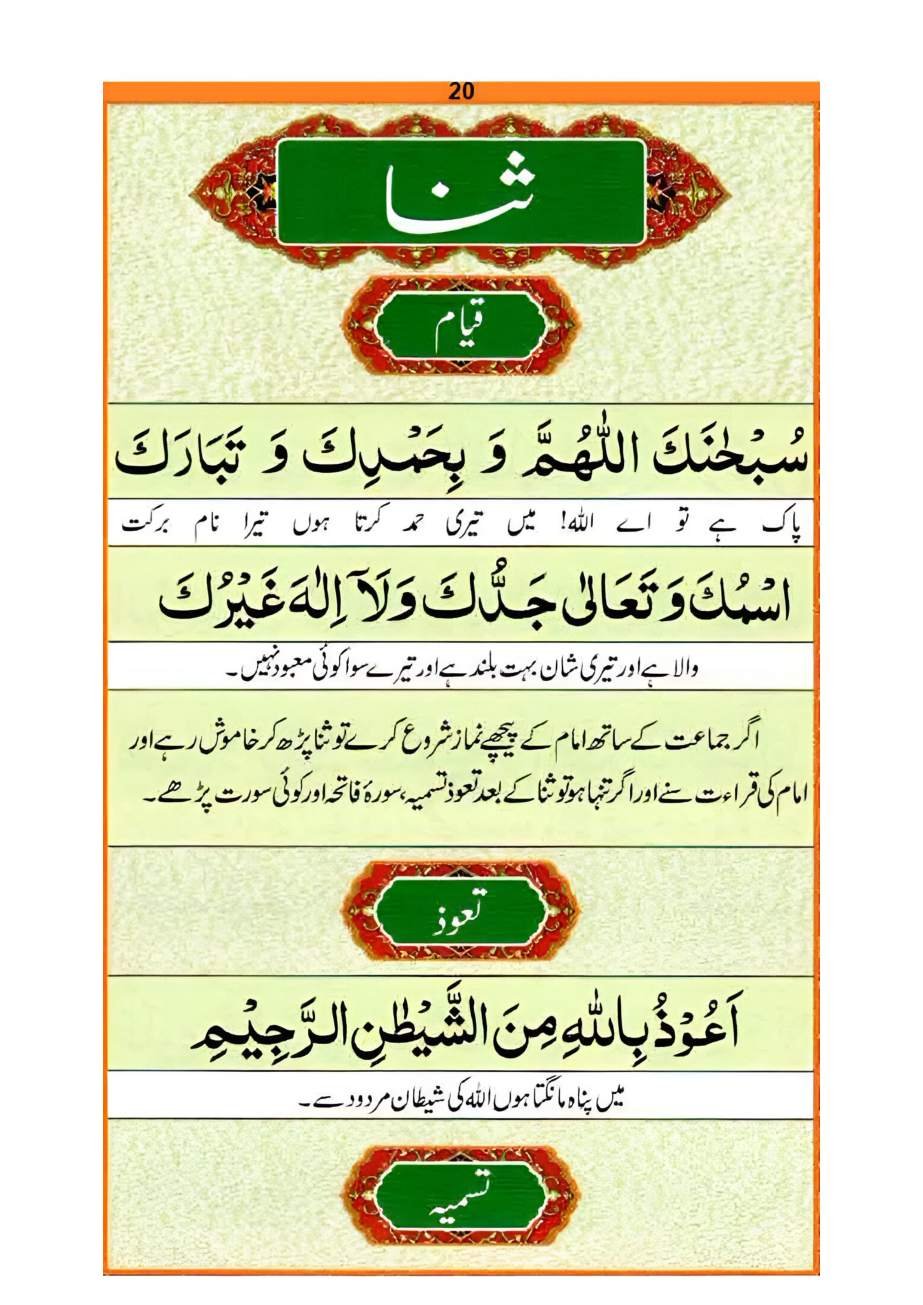 20
ثنا
قیام
سُبْحٰنَكَ اللّٰهُمَّ وَ بِحَمْدِكَ وَ تَبَارَكَ
پاک ہے تو اے اللہ! میں تیری حمد کرتا ہوں تیرا نام برکت
اسْمُكَ وَ تَعَالٰى جَدُّكَ وَلَآ اِلٰهَ غَيْرُكَ
والا ہے اور تیری شان بہت بلند ہے اور تیرے سوا کوئی معبود نہیں۔
اگر جماعت کے ساتھ امام کے پیچھے نماز شروع کرے تو ثنا پڑھ کر خاموش رہے اور
امام کی قراءت سنے اور اگر تنہا ہو تو ثنا کے بعد تعوذ تسمیہ، سورۂ فاتحہ اور کوئی سورت پڑھے۔
تعوذ
اَعُوْذُ بِاللّٰهِ مِنَ الشَّيْطٰنِ الرَّجِيْمِ
میں پناہ مانگتا ہوں اللہ کی شیطان مردود سے۔
تسمیہ